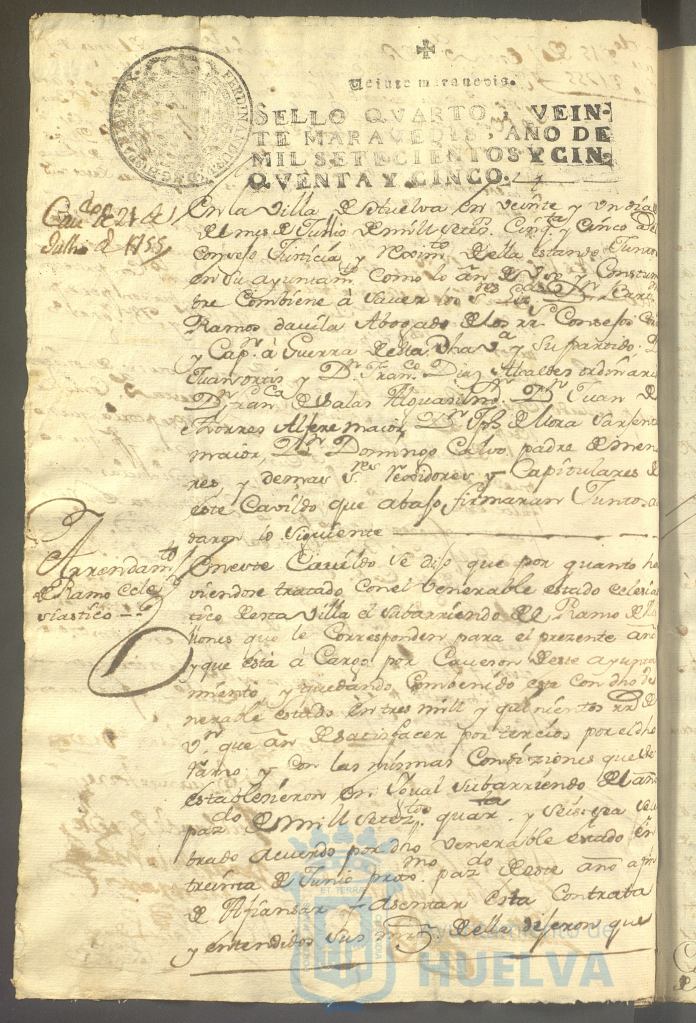 Veinte maravedis.
SELLO QVARTO, VEIN-
TE MARAVEDIS, AÑO DE
MIL SETECIENTOS Y CIN-
QVENTA Y CINCO.
Cavdo. de 21 de
Julio de 1755
En la Villa de Huelva en veinte y un dias
del mes de Julio de mill setezs. Cinqta. y cinco as. el
Consejo Justicia y Reximto. de ella estando Juntos
en su ayuntamto. como lo an de uso y Costum
bre Combiene à saver los Sres.
Ramos davila Abogado de los rr.s Consejos
y Capn. à Guerra de esta dha va. y su partido. Dn
Juan ortis y Dn. Franco. Diaz Alcaldes ordinarios
Dn. Franco. de Salas Alguasil mor. Dn. Juan de
Thorres Alferez maior, Dn. Jph. de Mora Sarjento
maior, Dn. Domingo Calvo padre de meno
res y demas Sres. Rexidores y Capitulares de
este Cavildo que abajo firmaran Juntos a
daron lo siguiente
Arrendamto.
de Ramo Ecle
siastico
En este Cavildo se dijo que por quanto ha
viendose tratado con el Venerable estado eclesias
tico de esta Villa el Subarriendo del Ramo de Mi
llones que le Corresponden para el prezente año
y que está à Cargo por Caveson de este ayunta
miento y quedando Combenido este con dho Ve
nerable estado en tres mill y quinientos rrs. de
Vn. que an de satisfacer por tercios por el dho
ramo y con las mismas Condiziones que se
establesieron en Ygual subarriendo del año
pazdo. de mill setezto. quarta. y seis sea cele
brado acuerdo por dho Venerable estado en
treinta de Junio proxmo. pazdo. de este año a fin
de Afiansar y asentar esta Contrata
y entendidos sus mrds. de ella dijeron que
ET TERRÆ
Ayuntamiento de
HUELVA